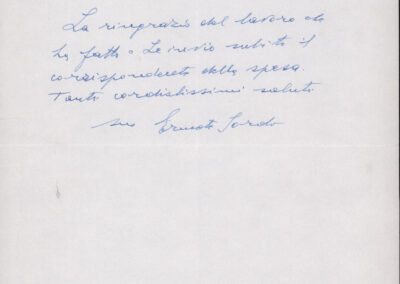 La ringrazio del lavoro che
ha fatto e Le invio subito il
corrispondente della spesa.
Tanti cordialissimi saluti
suo Ernesto